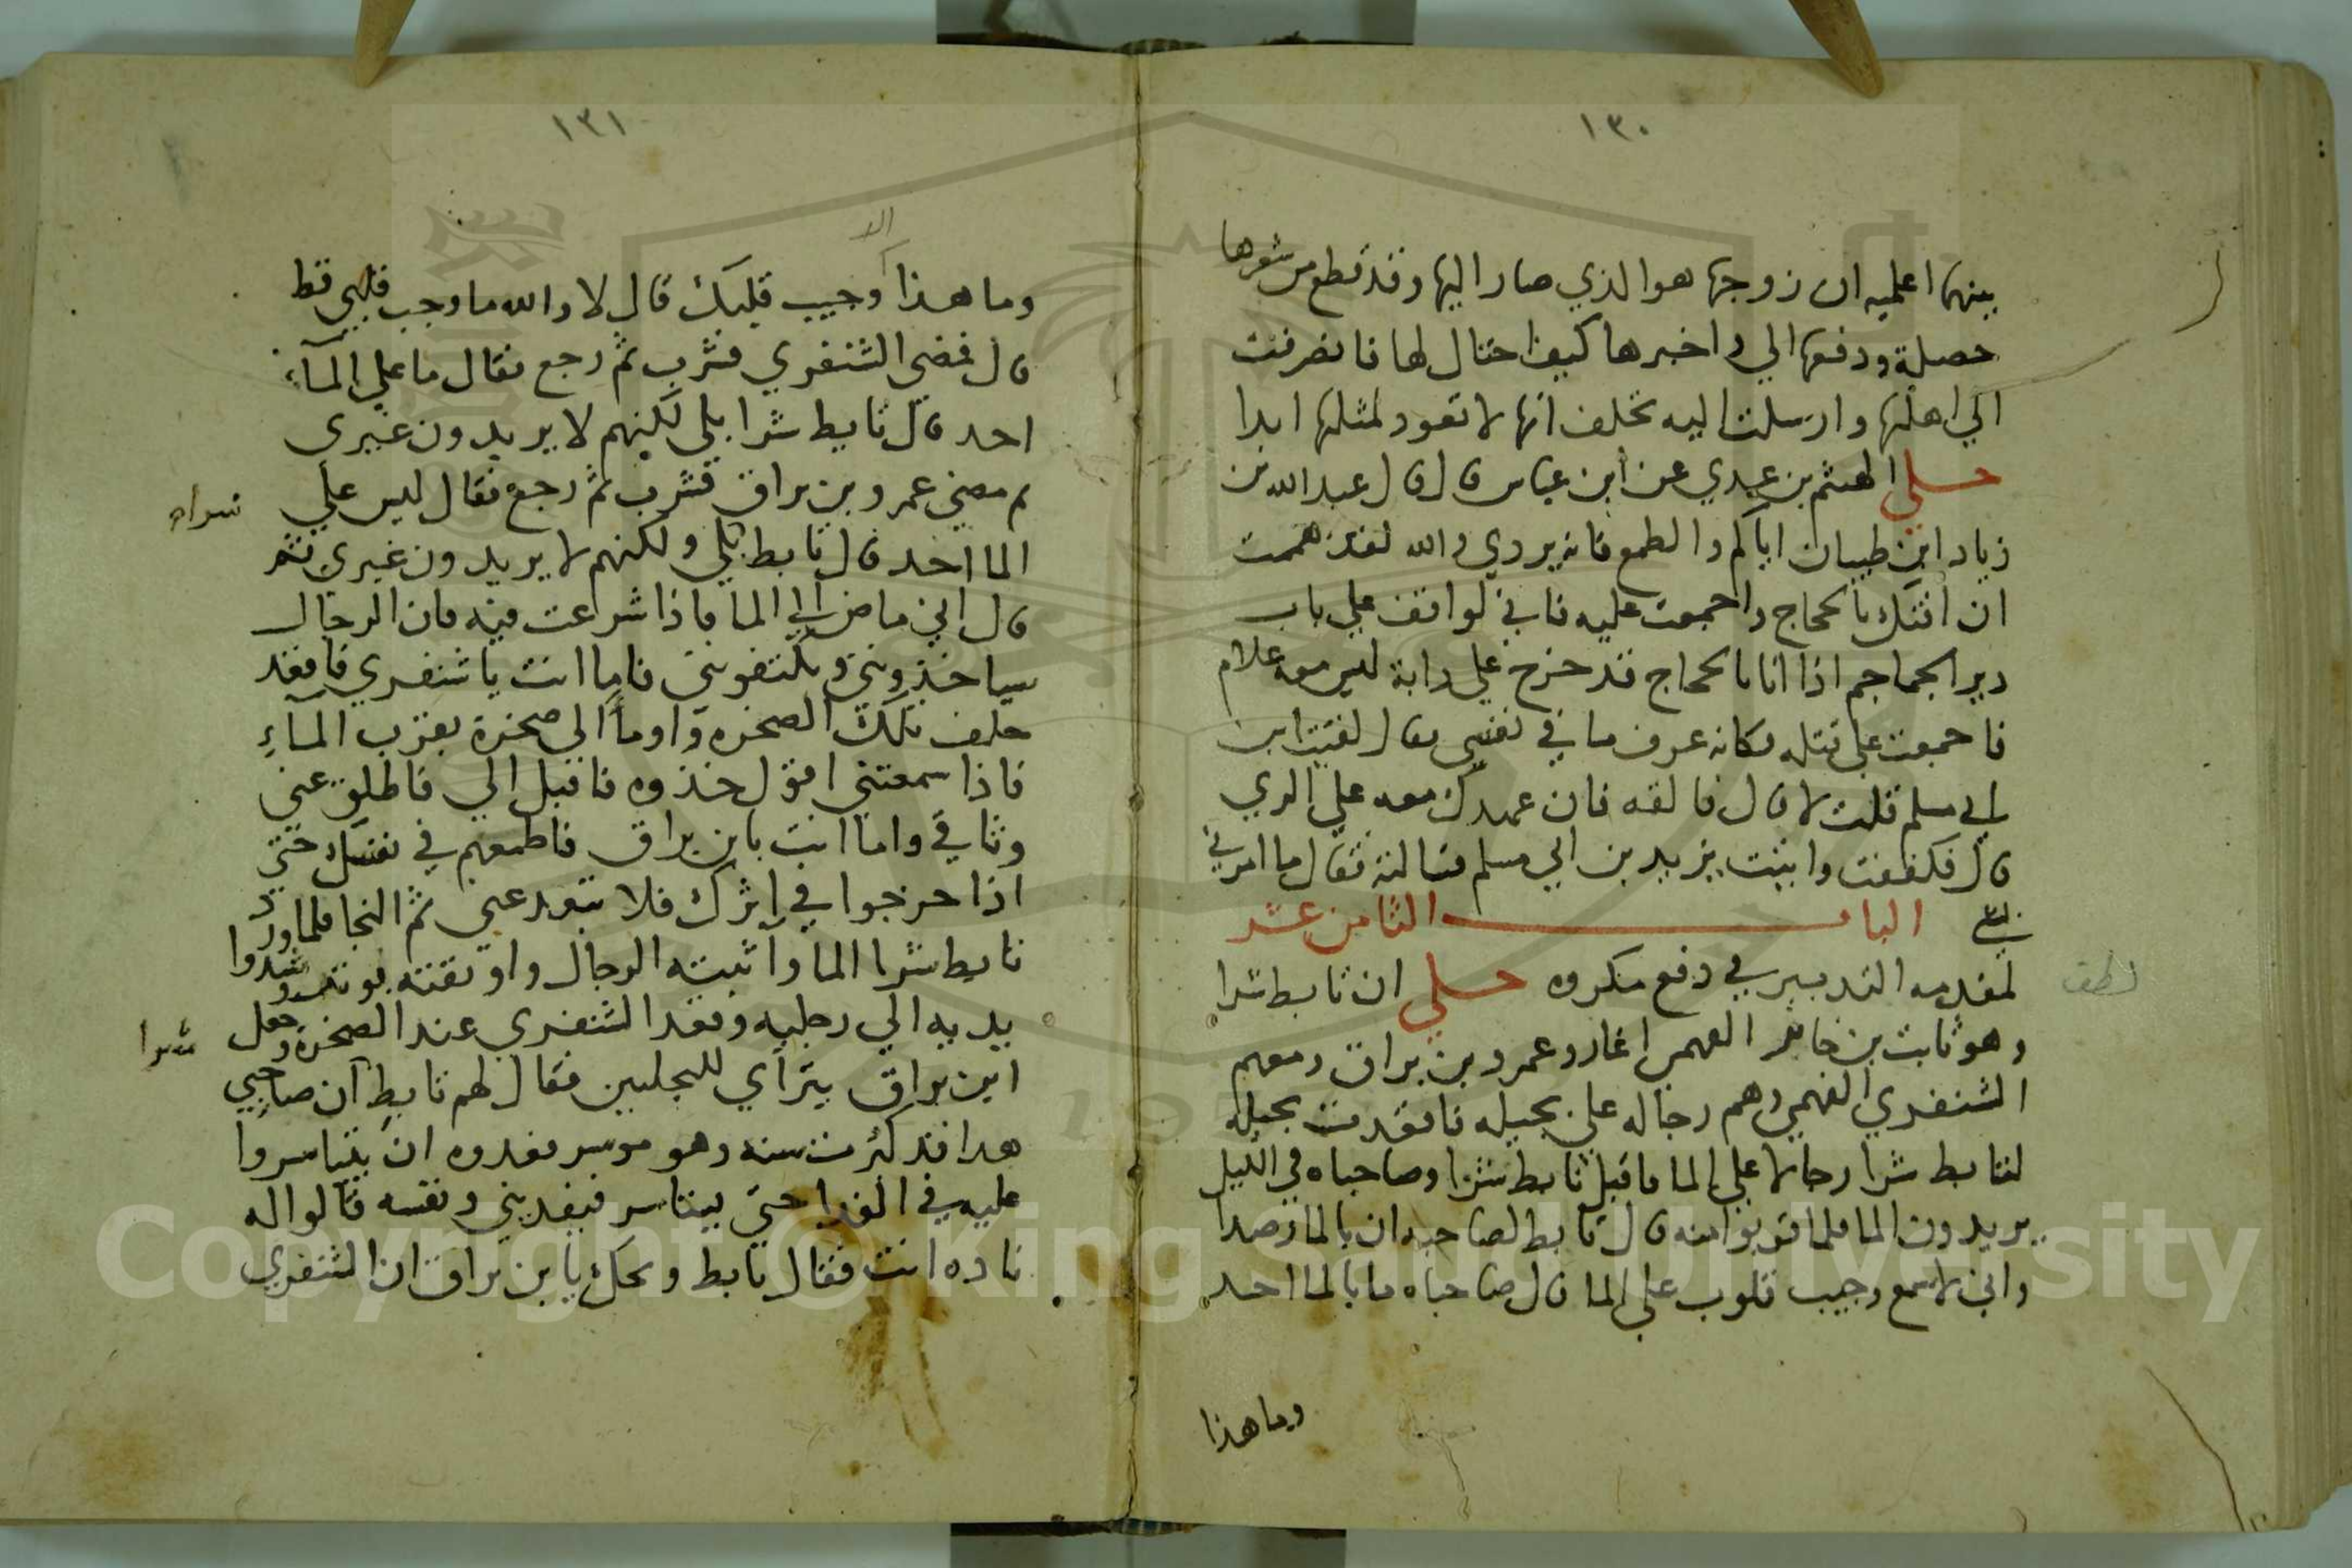 ١٣٠
بينهما اعلميه ان زوجها هو الذي صار اليها وقد قطع من شعرها
حصلة ودفعها الي واخبرها كيف احتال لها فانصرفت
الي اهلها وارسلت اليه تحلف انها لا تعود لمثلها ابدا
حكي الهيثم بن عدي عن ابن عباس قال قال عبد الله بن
زياد ابن ظبيان اياكم والطمع فانه يردي والله لقد هممت
ان افتك بالحجاج واجمعت عليه فاني لواقف علي باب
دير الجماجم اذا انا بالحجاج قد خرج علي دابة ليس معه غلام
فاجمعت علي قتله فكانه عرف ما في نفسي فقال لقيت ابن
ابي مسلم قلت لا قال فالقه فان عهدك معه علي الري
قال فكففت واتيت يزيد بن ابي مسلم فسالته فقال ما امرني
بشي الباب الثامن عشر
لمقدمه التدبير في دفع مكروه حكي ان تابط شرا
لطف
وهو ثابت بن جابر الفهمي اغار وعمرو بن براق ومعهم
الشنفري الفهمي وهم رجاله علي بجيله فاقعدت بجيله
لتابط شرا رجالا علي الما فاقبل تابط شرا وصاحباه في الليل
يريدون الما فلما قربوا منه قال تابط لصاحبه ان بالما رصدا
واني لاسمع وجيب قلوب علي الما قال صاحباه ما بالما احد
وما هذا
١٣١
الا
وما هذا وجيب قلبك قال لا والله ما وجب قلبي قط
قال فمضي الشنفري فشرب ثم رجع فقال ما علي الماء
احد قال تابط شرا بلي لكنهم لا يريدون غيري
ثم مضي عمرو بن براق فشرب ثم رجع فقال ليس علي
الما احد قال تابط بلي ولكنهم لا يريدون غيري ثم
قال اني ماض الي الما فاذا شرعت فيه فان الرجال
سياخذونني ويكتفونني فاما انت يا شنفري فاقعد
خلف تلك الصخره واوما الي صخرة بقرب الماء
فاذا سمعتني اقول خذوه فاقبل الي فاطلق عني
وثاقي واما انت يابن براق فاطمعهم في نفسك حتي
اذا خرجوا في اثرك فلا تبعد عني ثم النجا فلما ورد
تابط شرا الما واثبته الرجال واوثقته بوتر وشدوا
يديه الي رجليه وقعد الشنفري عند الصخره وجعل
شرا
ابن براق يتراي للبجليين فقال لهم تابط ان صاحبي
هدا قد كبرت سنه وهو موسر فعدوه ان يتياسروا
عليه في الفدا حتي يستاسر فيفديني ونفسه قالوا له
ناده انت فقال تابط ويحك يابن براق ان الشنفري